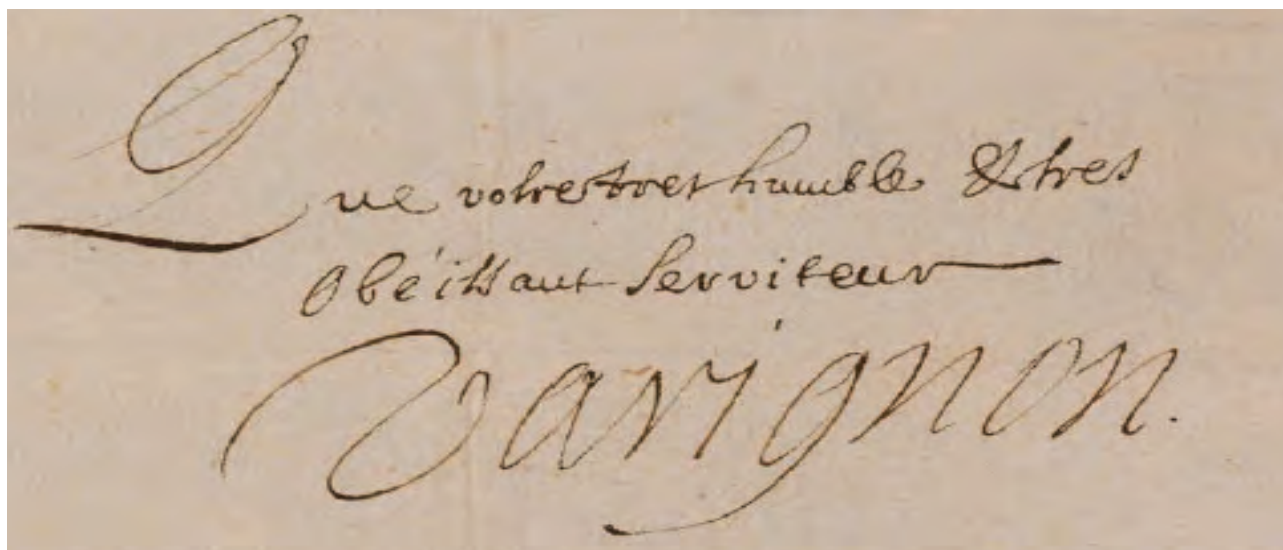 Que votre tres humble & tres
Obéissant serviteur
Varignon.